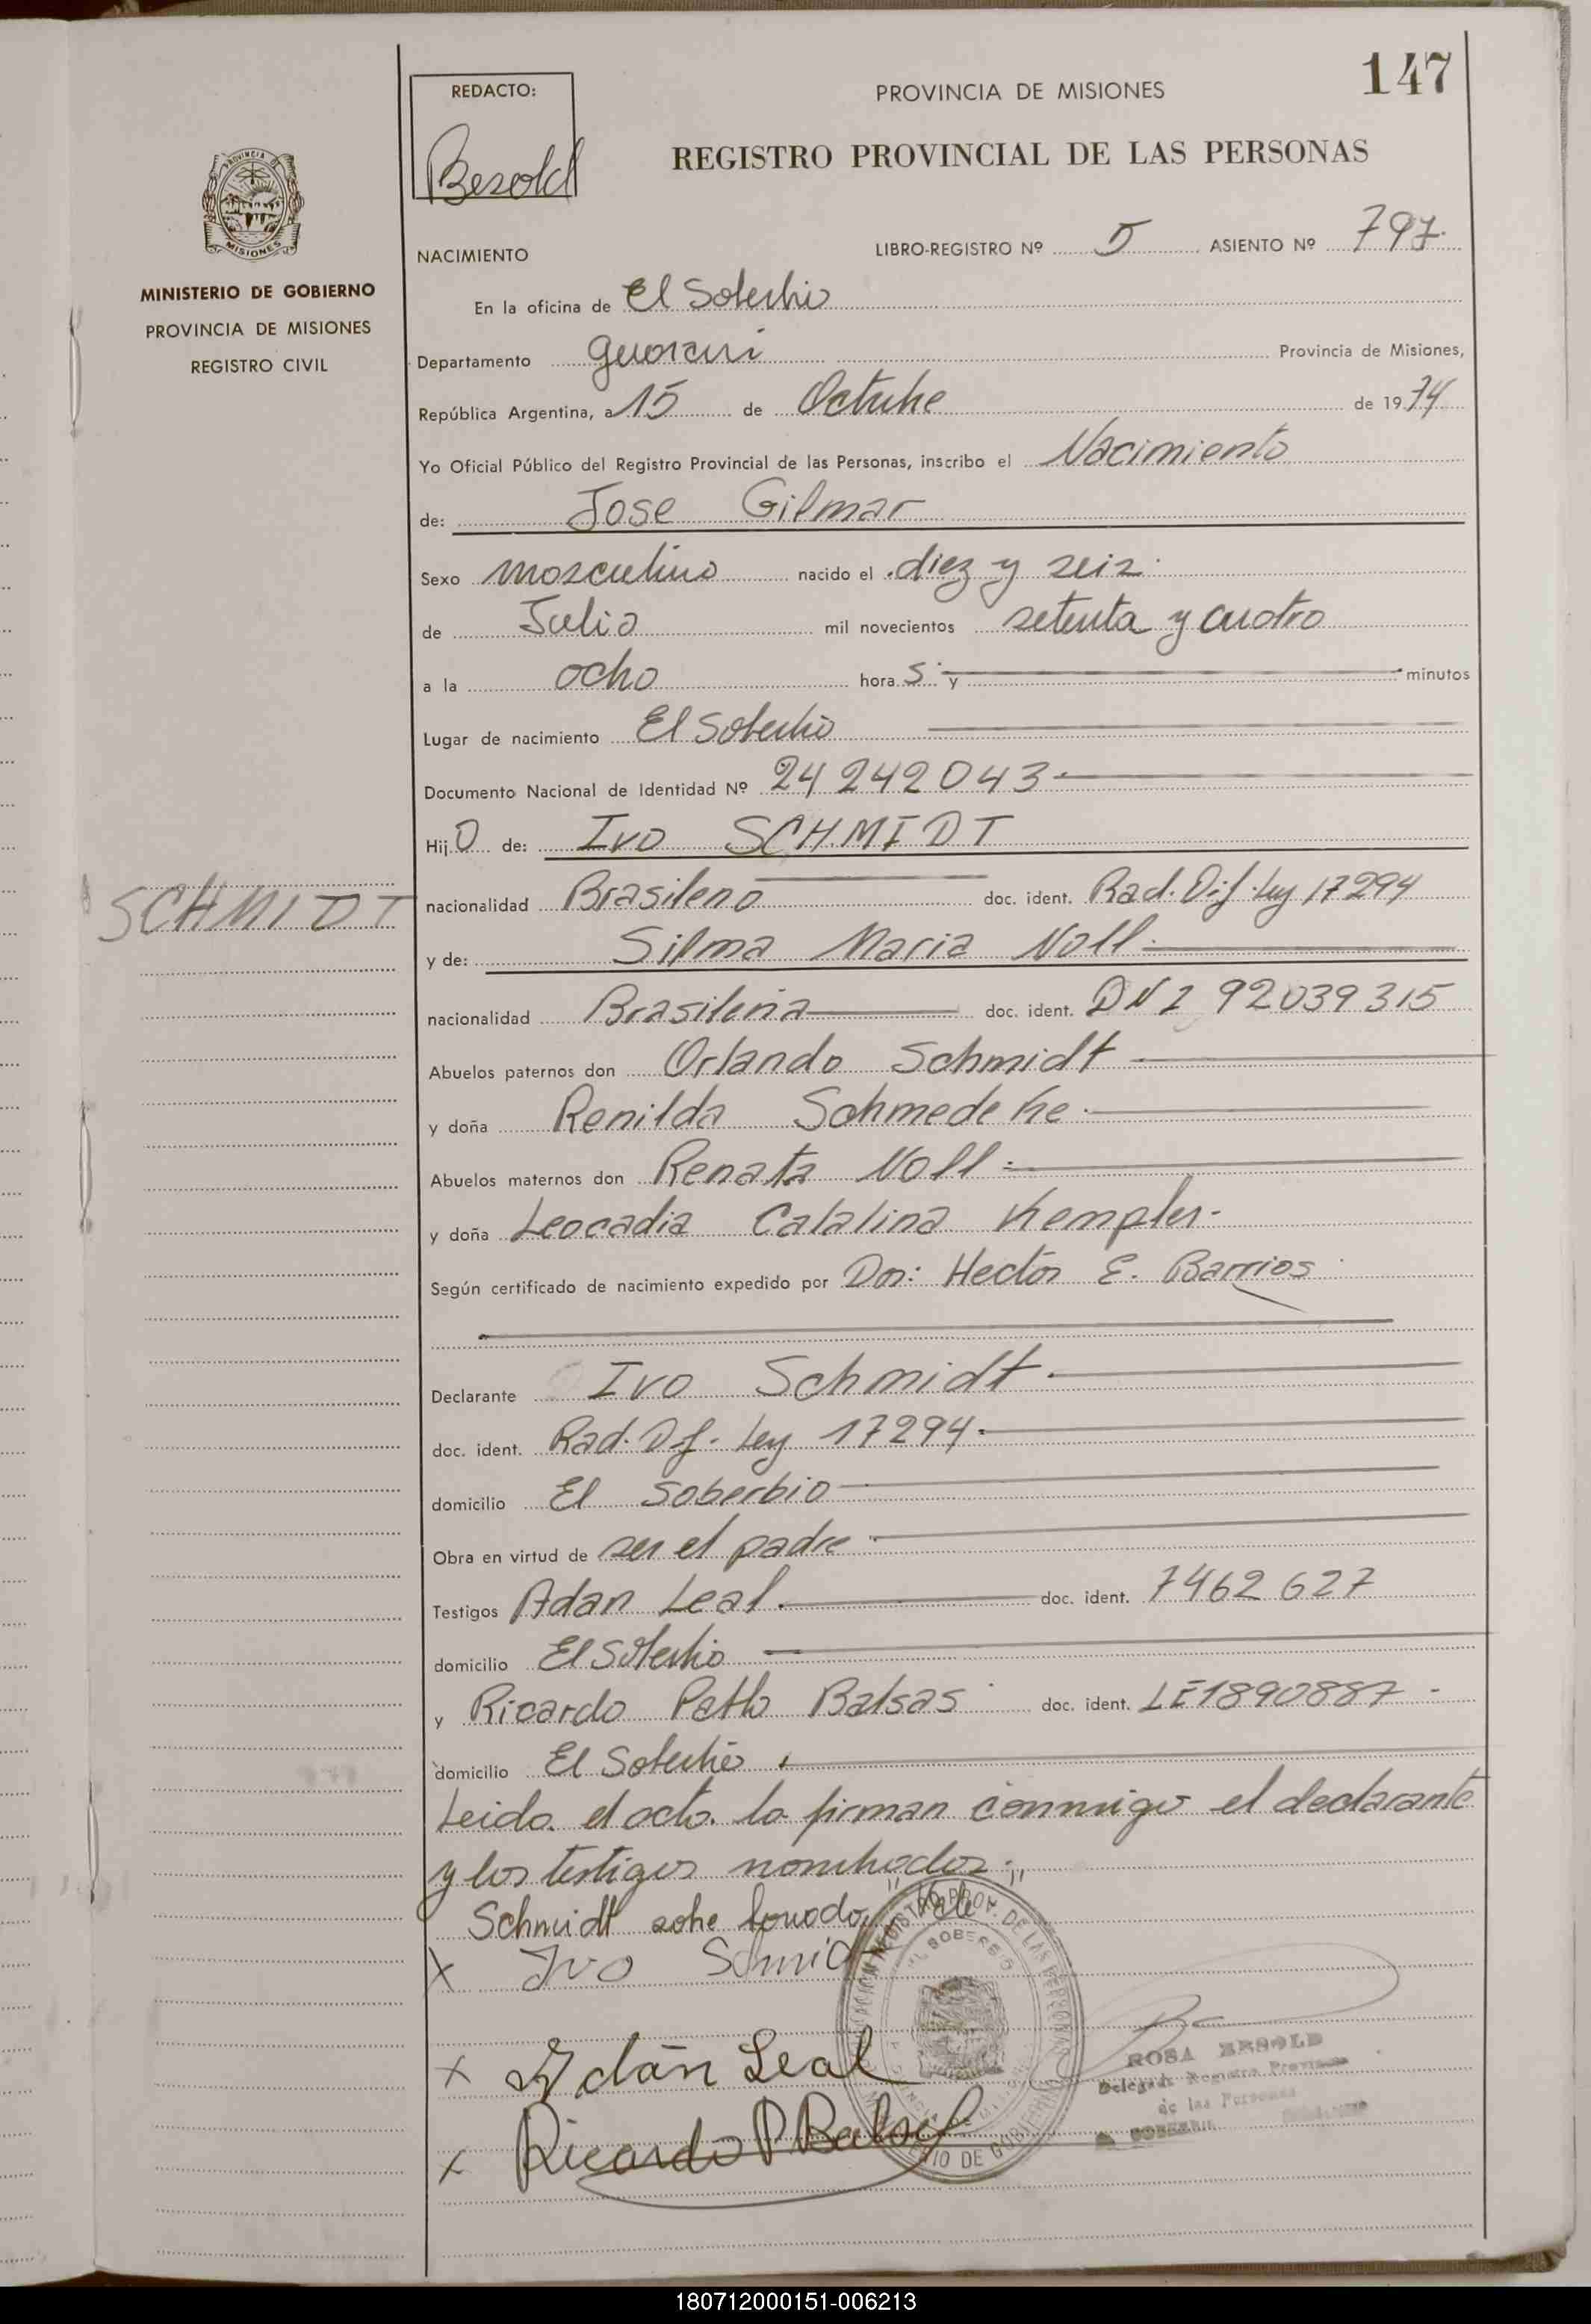 147
REDACTO:
Besold
PROVINCIA DE MISIONES
REGISTRO PROVINCIAL DE LAS PERSONAS
PROVINCIA DE
MISIONES
MINISTERIO DE GOBIERNO
PROVINCIA DE MISIONES
REGISTRO CIVIL
NACIMIENTO
LIBRO-REGISTRO Nº 5 ASIENTO Nº 797.
En la oficina de El Soberbio
Departamento Guarani Provincia de Misiones,
República Argentina, a 15 de Octubre de 1974
Yo Oficial Público del Registro Provincial de las Personas, inscribo el Nacimiento
de: Jose Gilmar
Sexo masculino nacido el diez y seis
de Julio mil novecientos setenta y cuatro
a la ocho hora s y minutos
Lugar de nacimiento El Soberbio
Documento Nacional de Identidad Nº 24242043
Hijo de: Ivo SCHMIDT
SCHMIDT
nacionalidad Brasileno doc. ident. Rad. Dif. Ley 17294
y de: Silma Maria Noll
nacionalidad Brasileña doc. ident. DNI 92039315
Abuelos paternos don Orlando Schmidt
y doña Renilda Schmedeke
Abuelos maternos don Renata Noll
y doña Leocadia Catalina Kempler
Según certificado de nacimiento expedido por Don: Hector E. Barrios
Declarante Ivo Schmidt
doc. ident. Rad. Df. Ley 17294
domicilio El Soberbio
Obra en virtud de ser el padre
Testigos Adan Leal doc. ident. 7462627
domicilio El Soberbio
y Ricardo Pablo Balsas doc. ident. LE 1890887
domicilio El Soberbio
Leida el acta la firman conmigo el declarante
y los testigos nombrados.
Schmidt sobre borrado "Vale"
x Ivo Schmidt
x Adán Leal
x Ricardo P Balsa
EL SOBERBIO
ROSA BESOLD
Delegada Registro Provincial
de las Personas
180712000151-006213